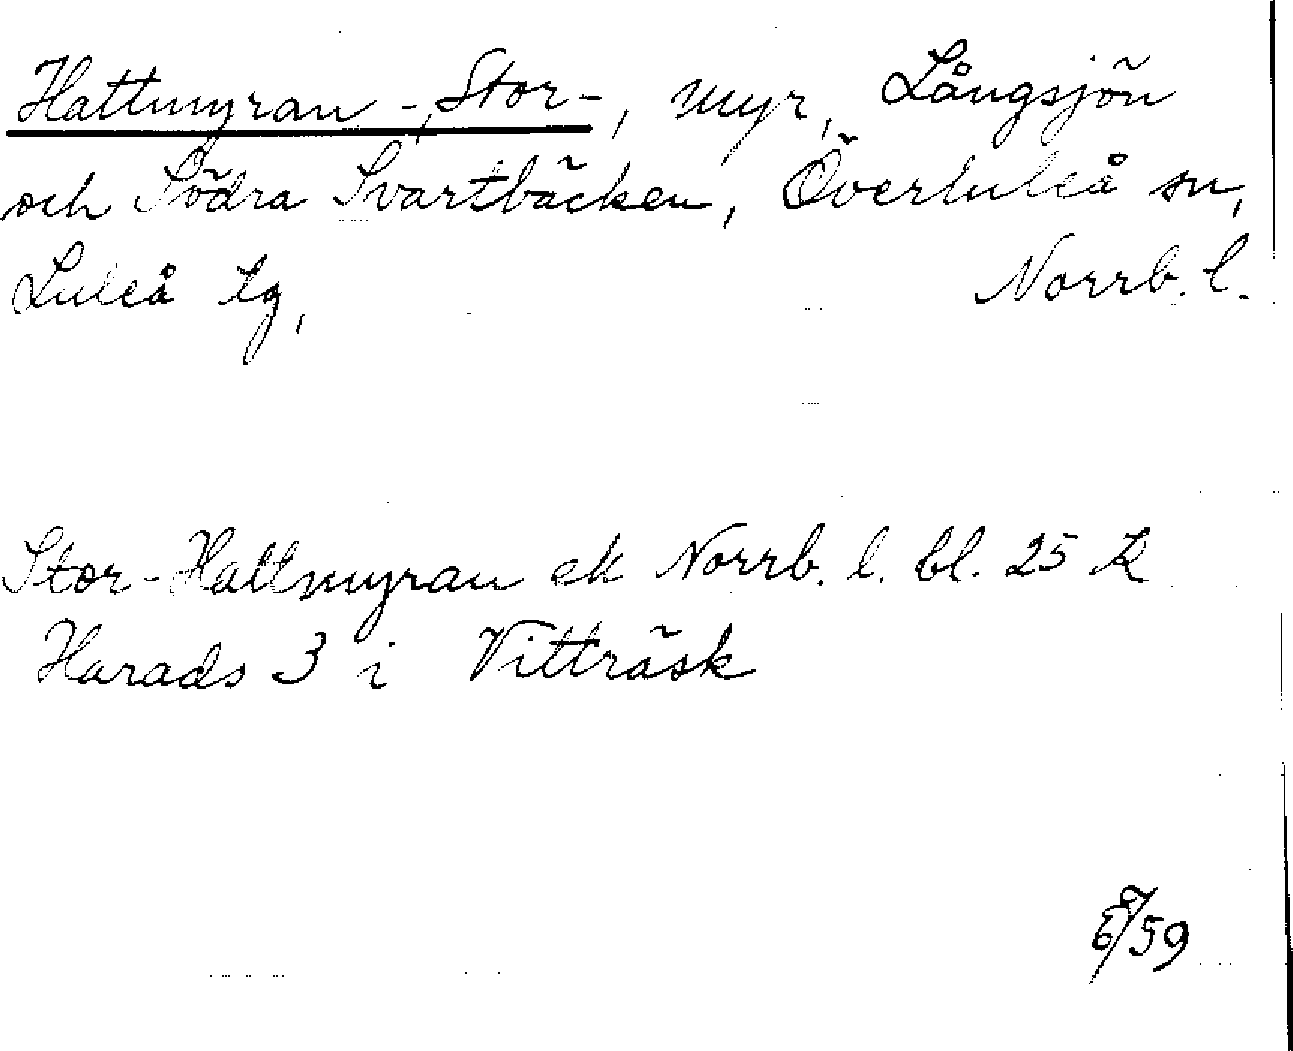 Hattmyran -, Stor-, myr, Långsjön
och Södra Svartbäcken, Överluleå sn,
Luleå tg, Norrb. l.
Stor-Hattmyran ek Norrb. l. bl. 25 K
Harads 3 i Vitträsk
/59